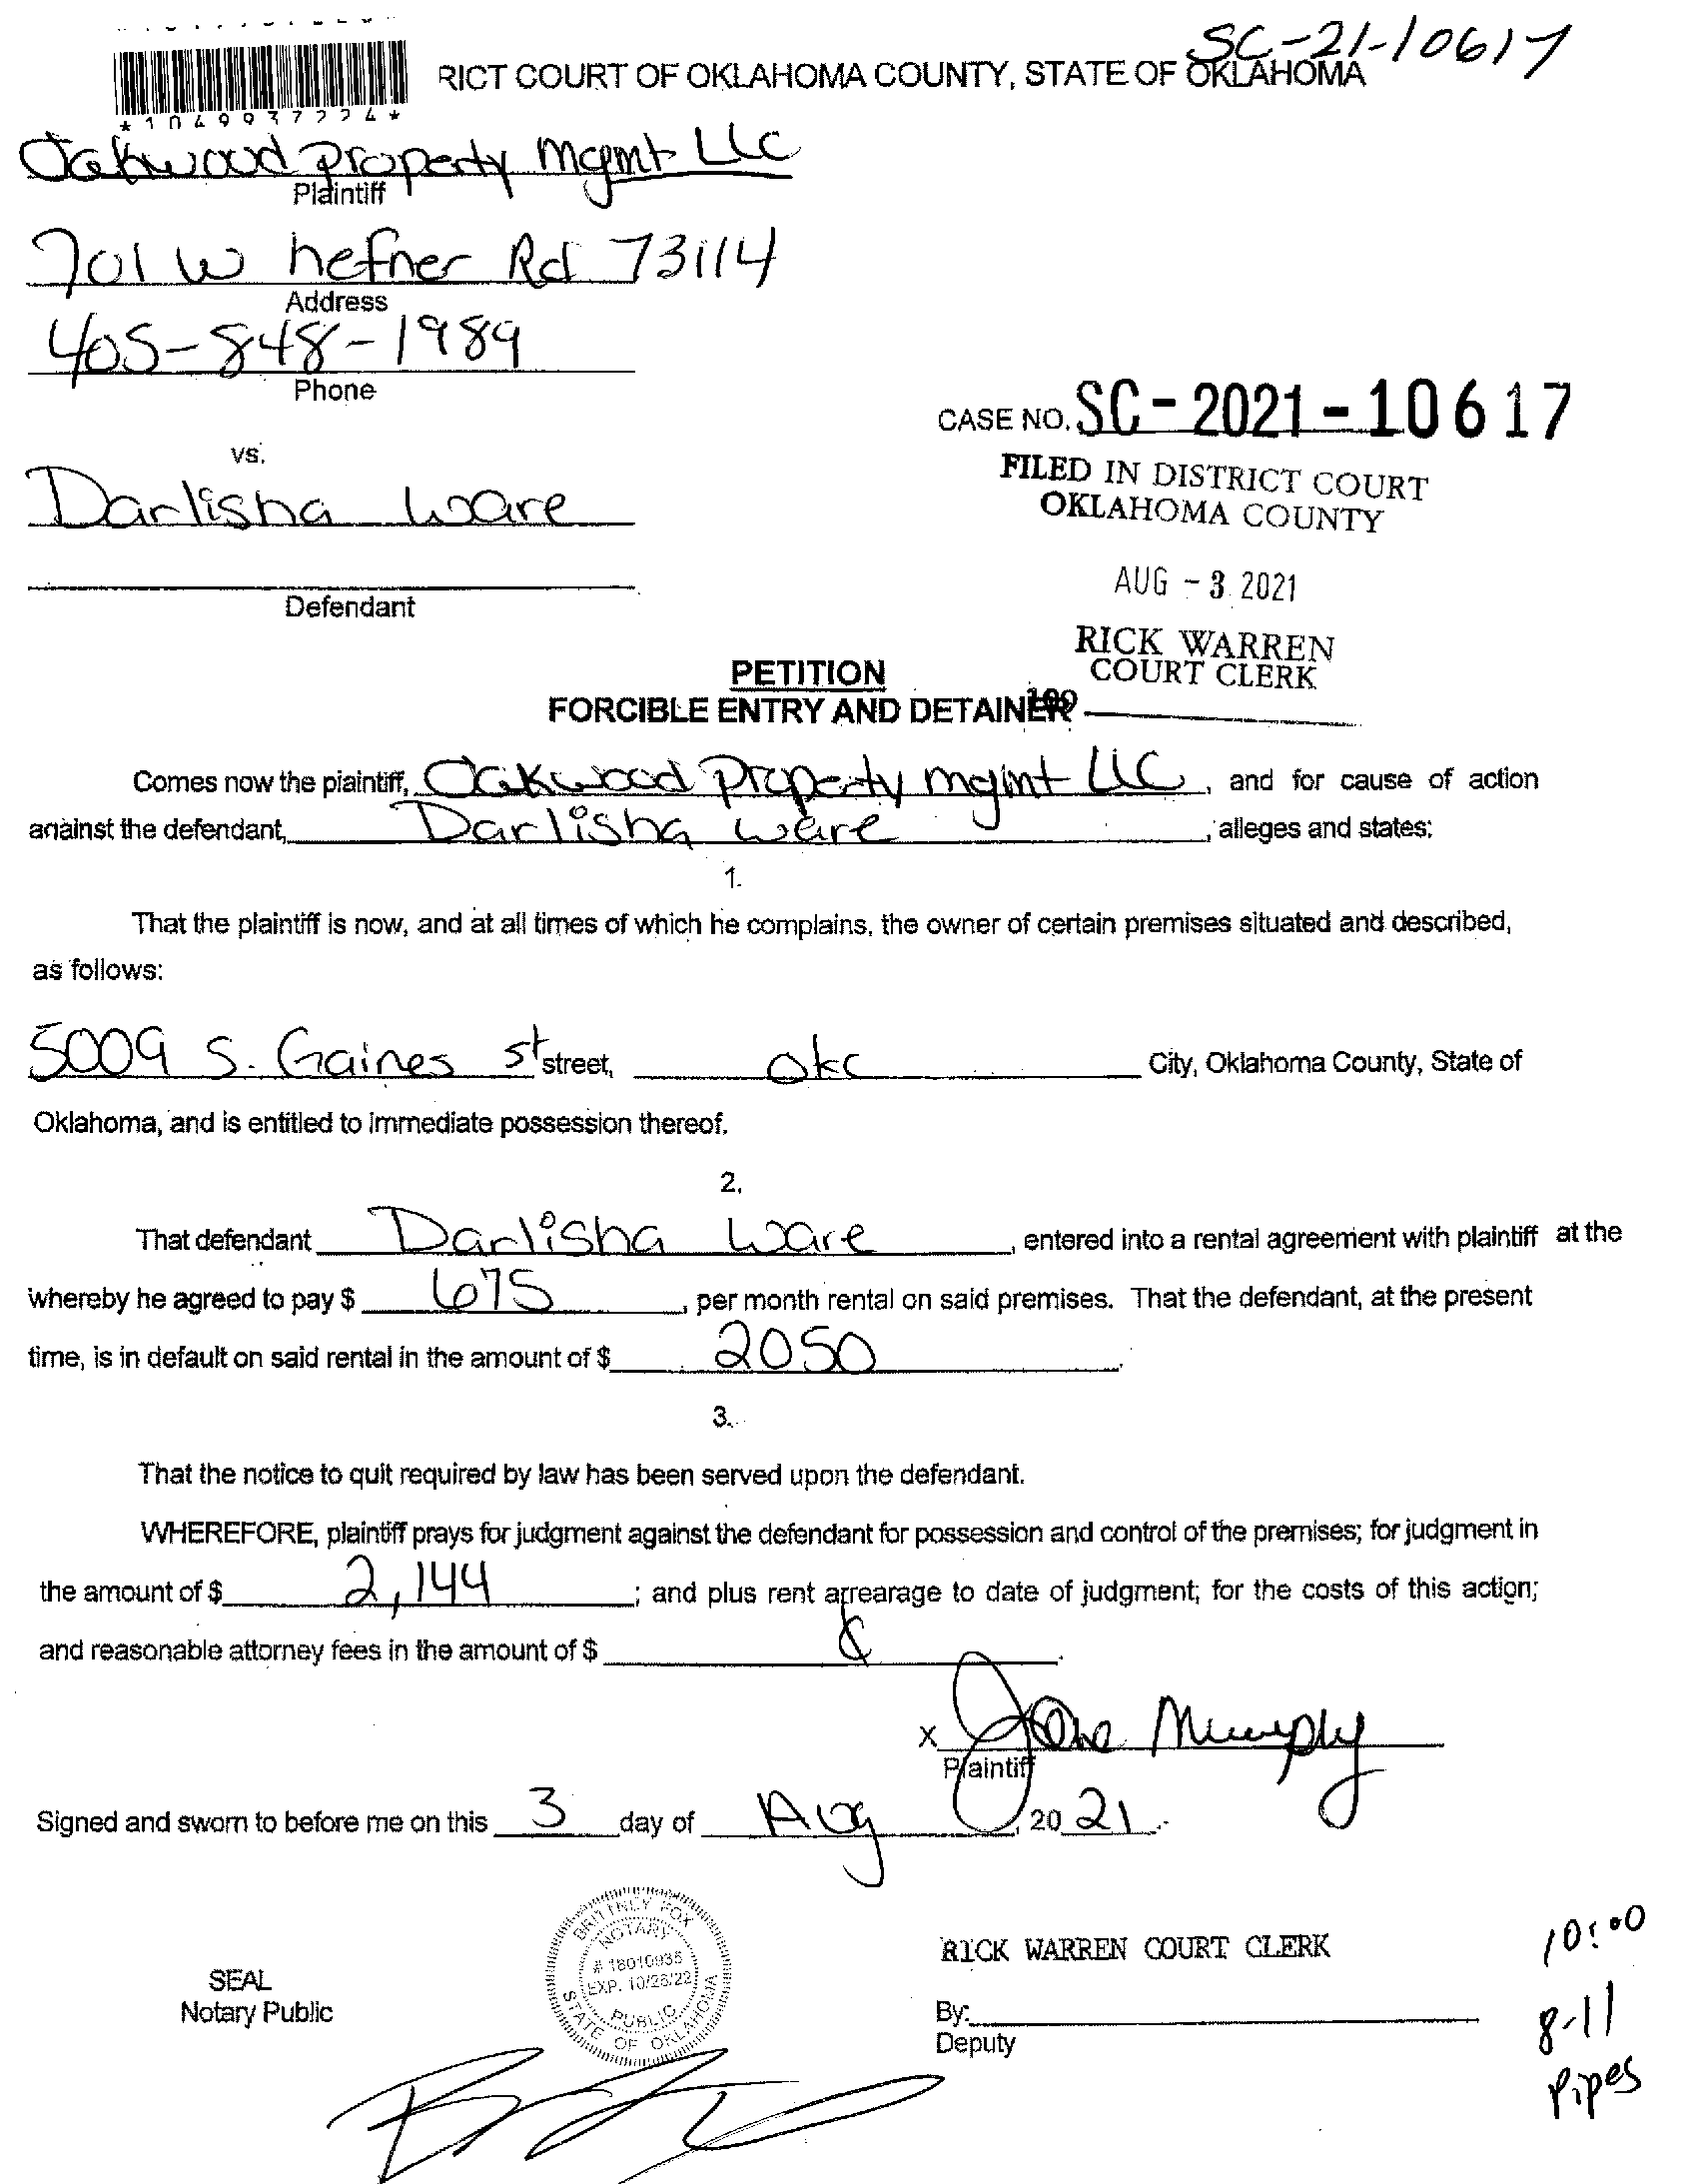 SC-21-10617
RICT COURT OF OKLAHOMA COUNTY, STATE OF OKLAHOMA
*1049937224*
Oakwood Property Mgmt LLC
Plaintiff
701 W hefner Rd 73114
Address
405-848-1989
Phone
CASE NO. SC-2021-10617
vs.
FILED IN DISTRICT COURT
OKLAHOMA COUNTY
Darlisha Ware
AUG -3 2021
Defendant
RICK WARREN
COURT CLERK
PETITION
FORCIBLE ENTRY AND DETAINER
Comes now the plaintiff, Oakwood Property mgmt LLC, and for cause of action
against the defendant, Darlisha Ware, alleges and states:
1.
That the plaintiff is now, and at all times of which he complains, the owner of certain premises situated and described,
as follows:
5009 S. Gaines St street, okc City, Oklahoma County, State of
Oklahoma, and is entitled to immediate possession thereof.
2.
That defendant Darlisha Ware, entered into a rental agreement with plaintiff at the
whereby he agreed to pay $ 675, per month rental on said premises. That the defendant, at the present
time, is in default on said rental in the amount of $ 2050.
3.
That the notice to quit required by law has been served upon the defendant.
WHEREFORE, plaintiff prays for judgment against the defendant for possession and control of the premises; for judgment in
the amount of $ 2,144; and plus rent arrearage to date of judgment; for the costs of this action;
and reasonable attorney fees in the amount of $
X Jane Murphy
Plaintiff
Signed and sworn to before me on this 3 day of Aug, 20 21.
BRITTNEY FOX
NOTARY
# 18010935
EXP. 10/26/22
PUBLIC
STATE OF OKLAHOMA
SEAL
Notary Public
RICK WARREN COURT CLERK
By:
Deputy
10:00
8-11
Pipes